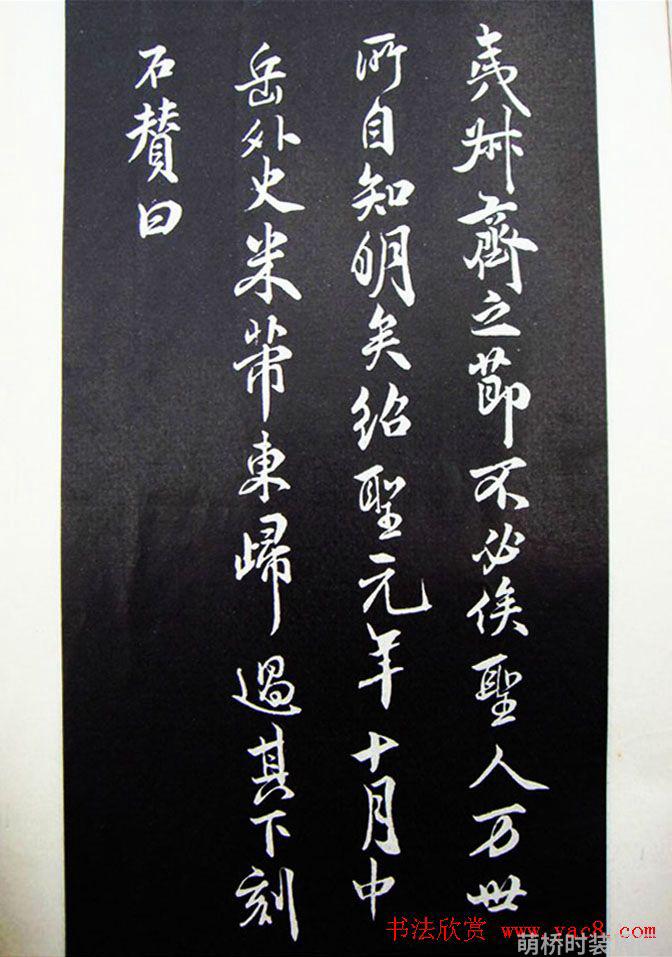 夷叔齊之節不必俟聖人万世
所自知明矣紹聖元年十月中
岳外史米芾東歸過其下刻
石賛曰
书法欣赏 www.yac8.com
萌桥时装